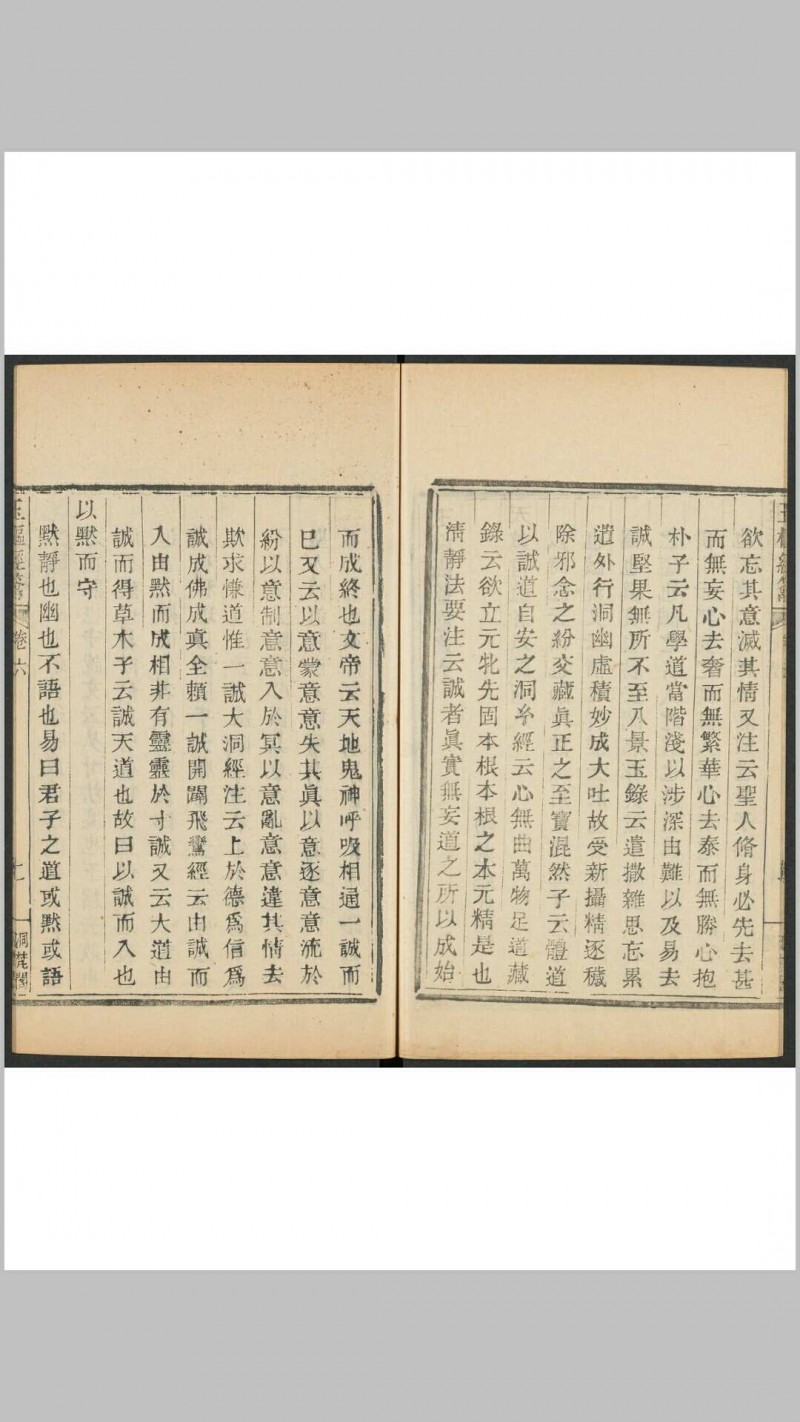 欲忘其意滅其情又注云聖人脩身必先去甚
而無妄心去奢而無繁華心去泰而無勝心抱
朴子云凡學道當階淺以涉深由難以及易去
誠堅果無所不至八景玉錄云遣撒雜思忘累
遺外行洞幽虛積妙成大吐故受新攝精逐穢
除邪念之紛交藏眞正之至寶混然子云體道
以誠道自安之洞
經云心無曲萬物足道藏
錄云欲立元牝先固本根本根之本元精是也
淸靜法要注云誠者眞實無妄道之所以成始
而成終也文帝云天地鬼神呼吸相通一誠而
已又云以意蒙意意失其眞以意逐意意流於
紛以意制意意入於冥以意亂意意違其情去
欺求慊道惟一誠大洞經注云上於德爲信爲
誠成佛成真全賴一誠開闡飛鸞經云由誠而
入由默而成相非有靈靈於寸誠又云大道由
誠而得草木子云誠天道也故曰以誠而入也
以默而守
默靜也幽也不語也易曰君子之道或默或語
玉樞經籥 卷六 七 洞梵閣